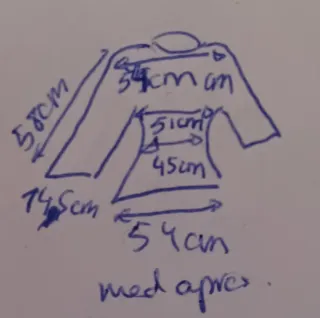 54cm cm
58cm
51cm
45cm
14,5cm
54cm
med apres.